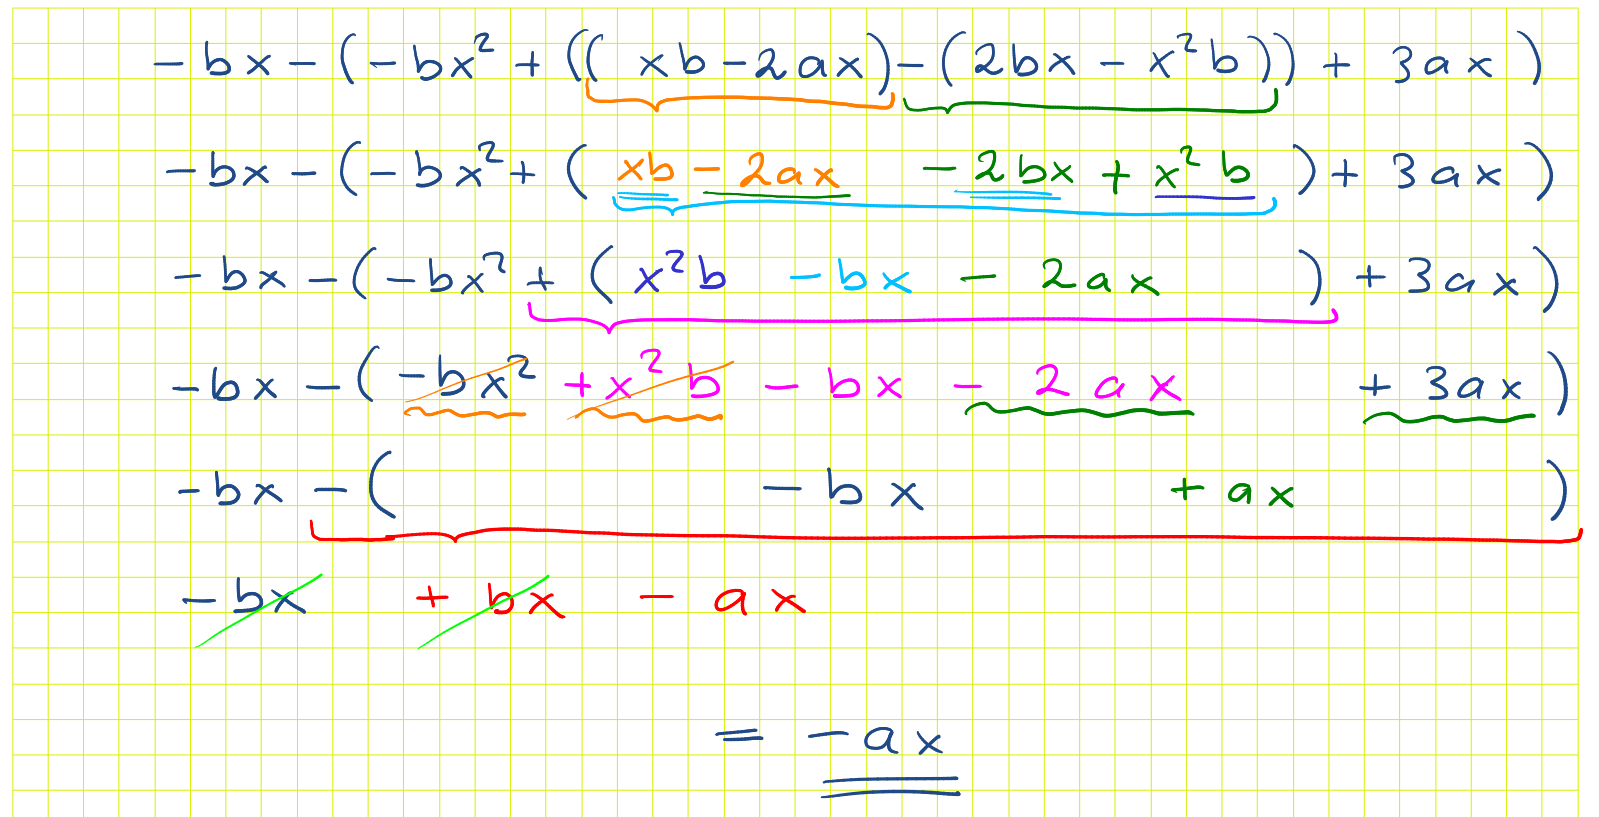 -bx-(-bx²+((xb-2ax)-(2bx-x²b))+3ax)
-bx-(-bx²+(xb-2ax-2bx+x²b)+3ax)
-bx-(-bx²+(x²b-bx-2ax)+3ax)
-bx-(-bx²+x²b-bx-2ax+3ax)
-bx-(-bx+ax)
-bx+bx-ax
=-ax